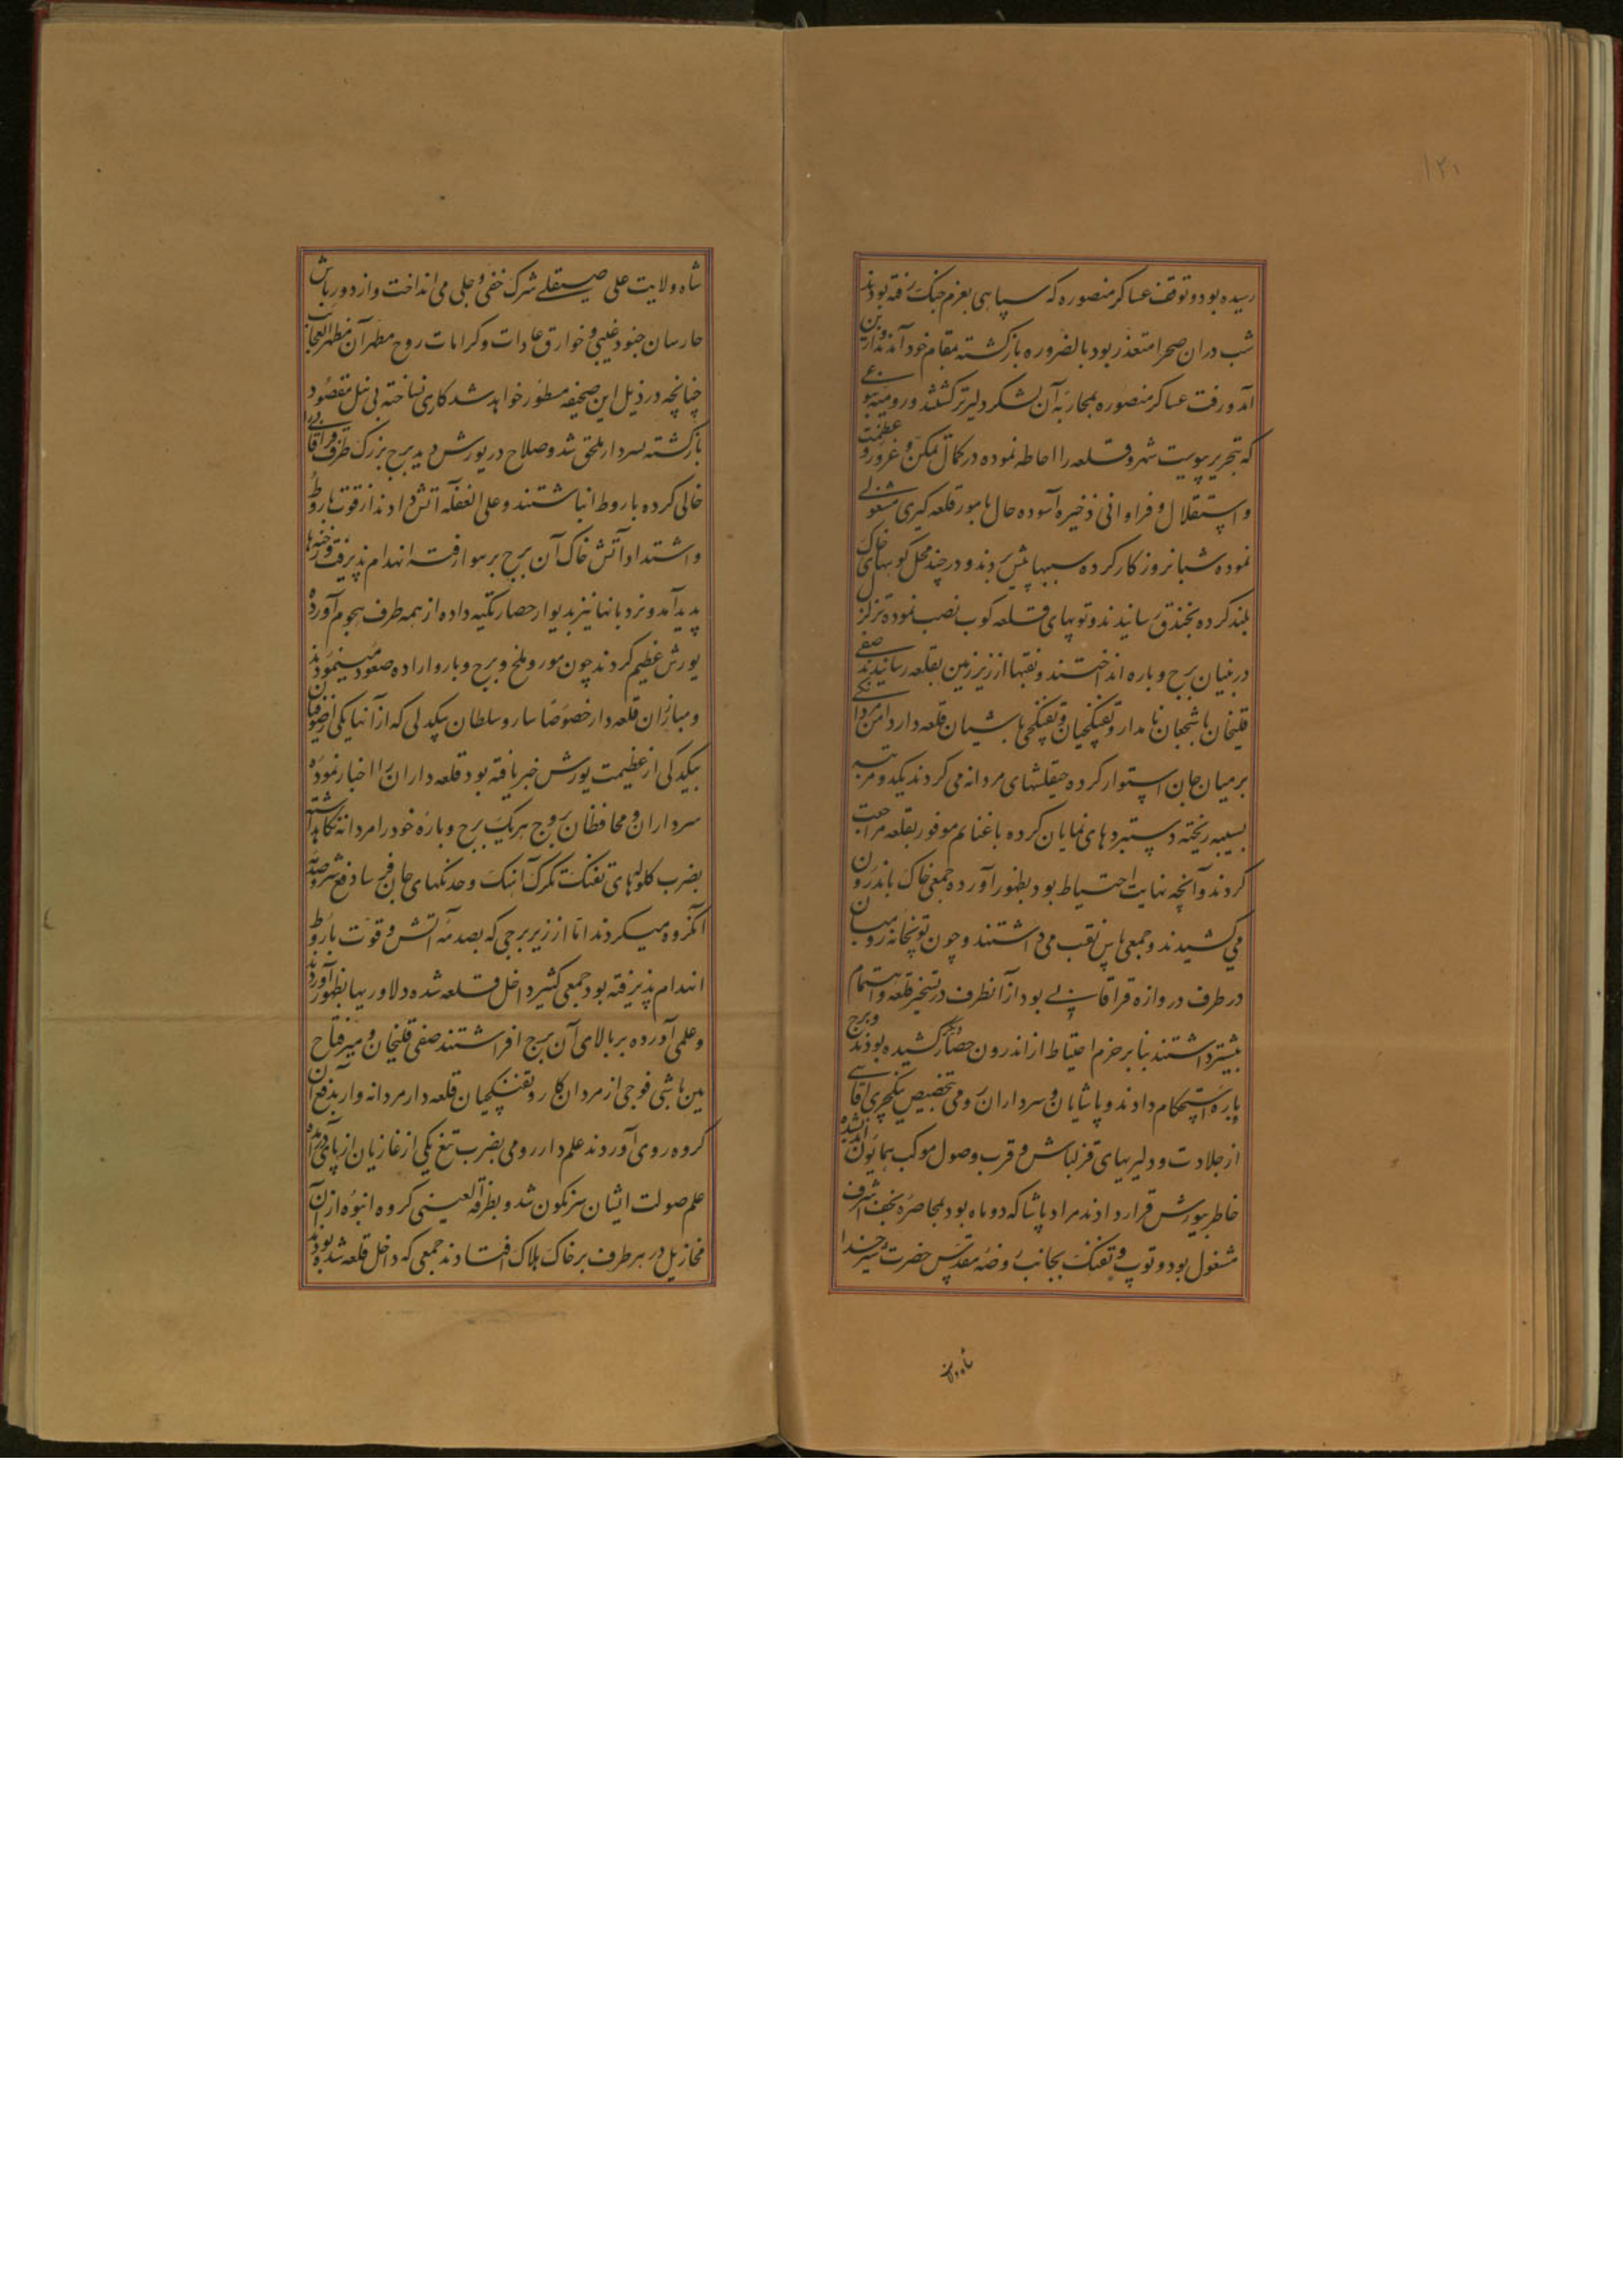 ۱۲۱
رسیده بود و توقف عساکر منصوره که سپاهی بعزم جنک رفته بودند
شب دران صحرا متعذر بود بالضروره بازکشته بمقام خود آمدند وازین
آمد و رفت عساکر منصوره بمحاربه آن لشکر دلیرتر کشتند و رومیه بنوعی
که تحریر پیوست شهر و قلعه را احاطه نموده در کمال تمکن و غرور و عظمت
و استقلال و فراوانی ذخیره آسوده حال بامور قلعه کیری مشغولی
نموده شبانروز کار کرده سیبها پیش بردند و در چند محل کوبهای خاک
بلند کرده بخندق رسانیدند و توپهای قلعه کوب نصب نموده تزلزل
در بنیان برج و باره انداختند و نقبها از زیر زمین بقلعه رسانیدند صفی
قلیخان با شجعان نامدار و تفنکچیان و تفنکچی باشیان قلعه دار دامن مردانکی
بر میان جان استوار کرده چپقلشهای مردانه می کردند یکدو مرتبه
بسیبه ریخته دستبردهای نمایان کرده با غنایم موفور بقلعه مراجعت
کردند و آنچه نهایت احتیاط بود بظهور آورده جمعی خاک باندرون
می کشیدند و جمعی پاس نقب می داشتند و چون توپخانه رومیان
در طرف دروازه قراقاپی بود از آنطرف در تسخیر قلعه اهتمام
بیشتر داشتند بنابر حزم احتیاط از اندرون حصار دیکر کشیده بودند و برج
باره استحکام دادند و پاشایان و سرداران رومی تخصیص ینکچری آقاسی
از جلادت و دلیریهای قزلباش و قرب وصول موکب همایون اندیشه
خاطر بیورش قرار دادند مراد پاشا که دو ماه بود بمحاصره نجف اشرف
مشغول بود و توپ و تفنک بجانب روضه مقدس حضرت شیر خدا
شاه ولایت
شاه ولایت علی صیقلی شرک خفی و جلی می انداخت و از دورباش
حارسان جنود غیبی و خوارق عادات و کرامات روح مطهر آن مظهر العجایب
چنانچه در ذیل این صحیفه مسطور خواهد شد کاری نساخته بی نیل مقصود
بازکشته بسردار ملحق شد و صلاح در یورش دید برج بزرک طرف قراقاپی را
خالی کرده باروط انباشتند و علی الغفله آتش دادند از قوت باروط
و اشتداد آتش خاک آن برج بر هوا رفت انهدام پذیرفت و رخنها
پدید آمد و نردبانها نیز بدیوار حصار تکیه داده از همه طرف هجوم آورده
یورش عظیم کردند چون مور و ملخ و برج و بارو اراده صعود مینمودند
و مبارزان قلعه دار خصوصا سارو سلطان بیکدلی که از آنها یکی از صوفیان
بیکدلی از عظیمت یورش خبر یافته بود قلعه داران را اخبار نموده
سرداران و محافظان بروج هریک برج و باره خود را مردانه نکاهداشته
بضرب کلولهای تفنک تکرک آهنک و خدنکهای جان فرسا دفع شر و صدمه
آنکروه میکردند اما از زیر برجی که بصدمه آتش و قوت باروط
انهدام پذیرفته بود جمعی کثیر داخل قلعه شده دلاوریها بظهور آوردند
و علمی آورده بر بالای آن برج افراشتند صفی قلیخان و میر فتاح
مین باشی فوجی از مردان کار و تفنکچیان قلعه دار مردانه وار بدفع آن
کروه روی آوردند علم دار رومی بضرب تیغ یکی از غازیان از پای درآمده
علم صولت ایشان سرنکون شد و بطرفة العینی کروه انبوه از آن
مخاذیل در هر طرف بر خاک هلاک افتادند جمعی که داخل قلعه شده بودند